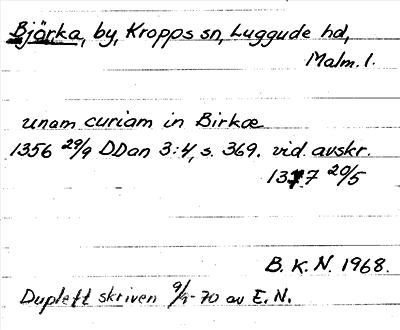 Bjärka, by, Kropps sn, Luggude hd,
Malm. l.
unam curiam in Birkæ
1356 29/9 DDan 3:4, s. 369. vid. avskr.
1377 20/5
B. K. N. 1968.
Duplett skriven 9/9-70 av E. N.